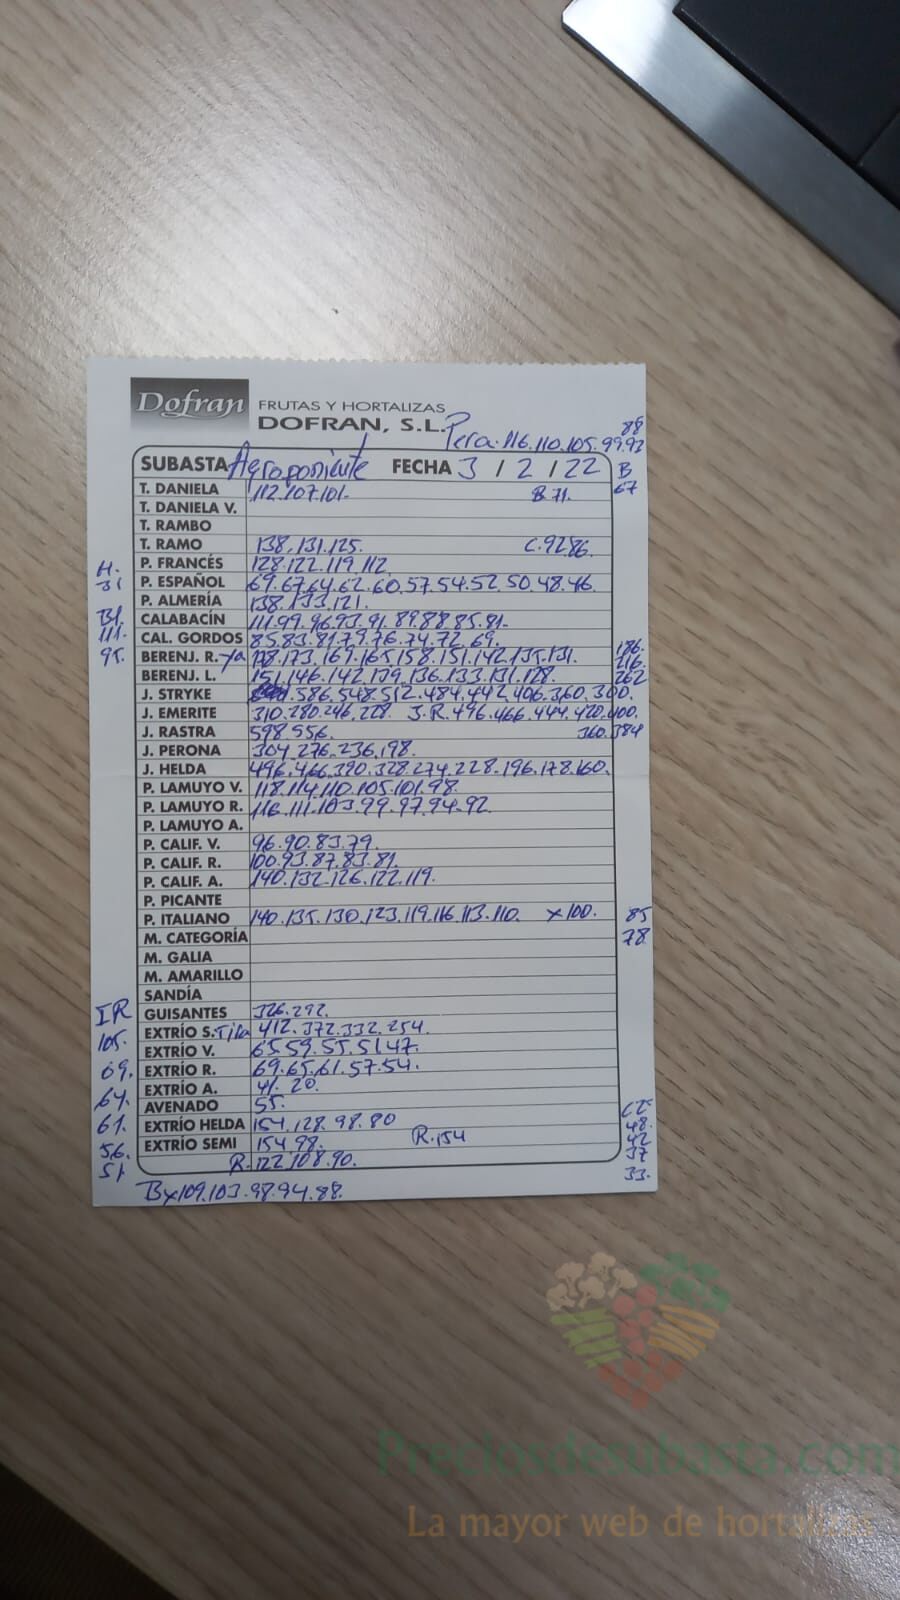 Dofran FRUTAS Y HORTALIZAS
DOFRAN, S.L.
Pera. 116.110.105.99.93
88
SUBASTA Agroponiente FECHA 3 / 2 / 22 B
T. DANIELA 112.107.101. B 71. 67
T. DANIELA V.
T. RAMBO
T. RAMO 138.131.125. C.92 86.
H. P. FRANCÉS 128.122.119.112
31 P. ESPAÑOL 69.67.64.62.60.57.54.52.50.48.46.
P. ALMERÍA 138.133.121.
Bl. CALABACÍN 111.99.96.93.91.89.88.85.81.
111. CAL. GORDOS 85.83.81.79.76.74.72.69.
95. BERENJ. R. ya 178.173.169.165.158.151.142.135.131. 186.
216.
BERENJ. L. 151.146.142.139.136.133.131.128. 262
J. STRYKE .586.548.512.484.442.406.360.300.
J. EMERITE 310.280.246.228. J.R.496.466.444.420.400.
J. RASTRA 598.556. 360.384
J. PERONA 304.276.236.198.
J. HELDA 496.466.390.328.274.228.196.178.160.
P. LAMUYO V. 118.114.110.105.101.98.
P. LAMUYO R. 116.111.103.99.97.94.92.
P. LAMUYO A.
P. CALIF. V. 96.90.83.79.
P. CALIF. R. 100.93.87.83.81.
P. CALIF. A. 140.132.126.122.119.
P. PICANTE
P. ITALIANO 140.135.130.123.119.116.113.110. x100. 85
M. CATEGORÍA 78.
M. GALIA
M. AMARILLO
SANDÍA
IR GUISANTES 326.292.
105. EXTRÍO S. Tira 412.372.332.254.
EXTRÍO V. 65.59.55.51.47.
69. EXTRÍO R. 69.65.61.57.54.
64. EXTRÍO A. 41. 20.
AVENADO 55.
61. EXTRÍO HELDA 154.128.98.80
48.
56. EXTRÍO SEMI 154.98. R.154 42
51 R.122.108.90. 37
33.
Bx109.103.98.94.88.
Preciosdesubasta.com
La mayor web de hortalizas